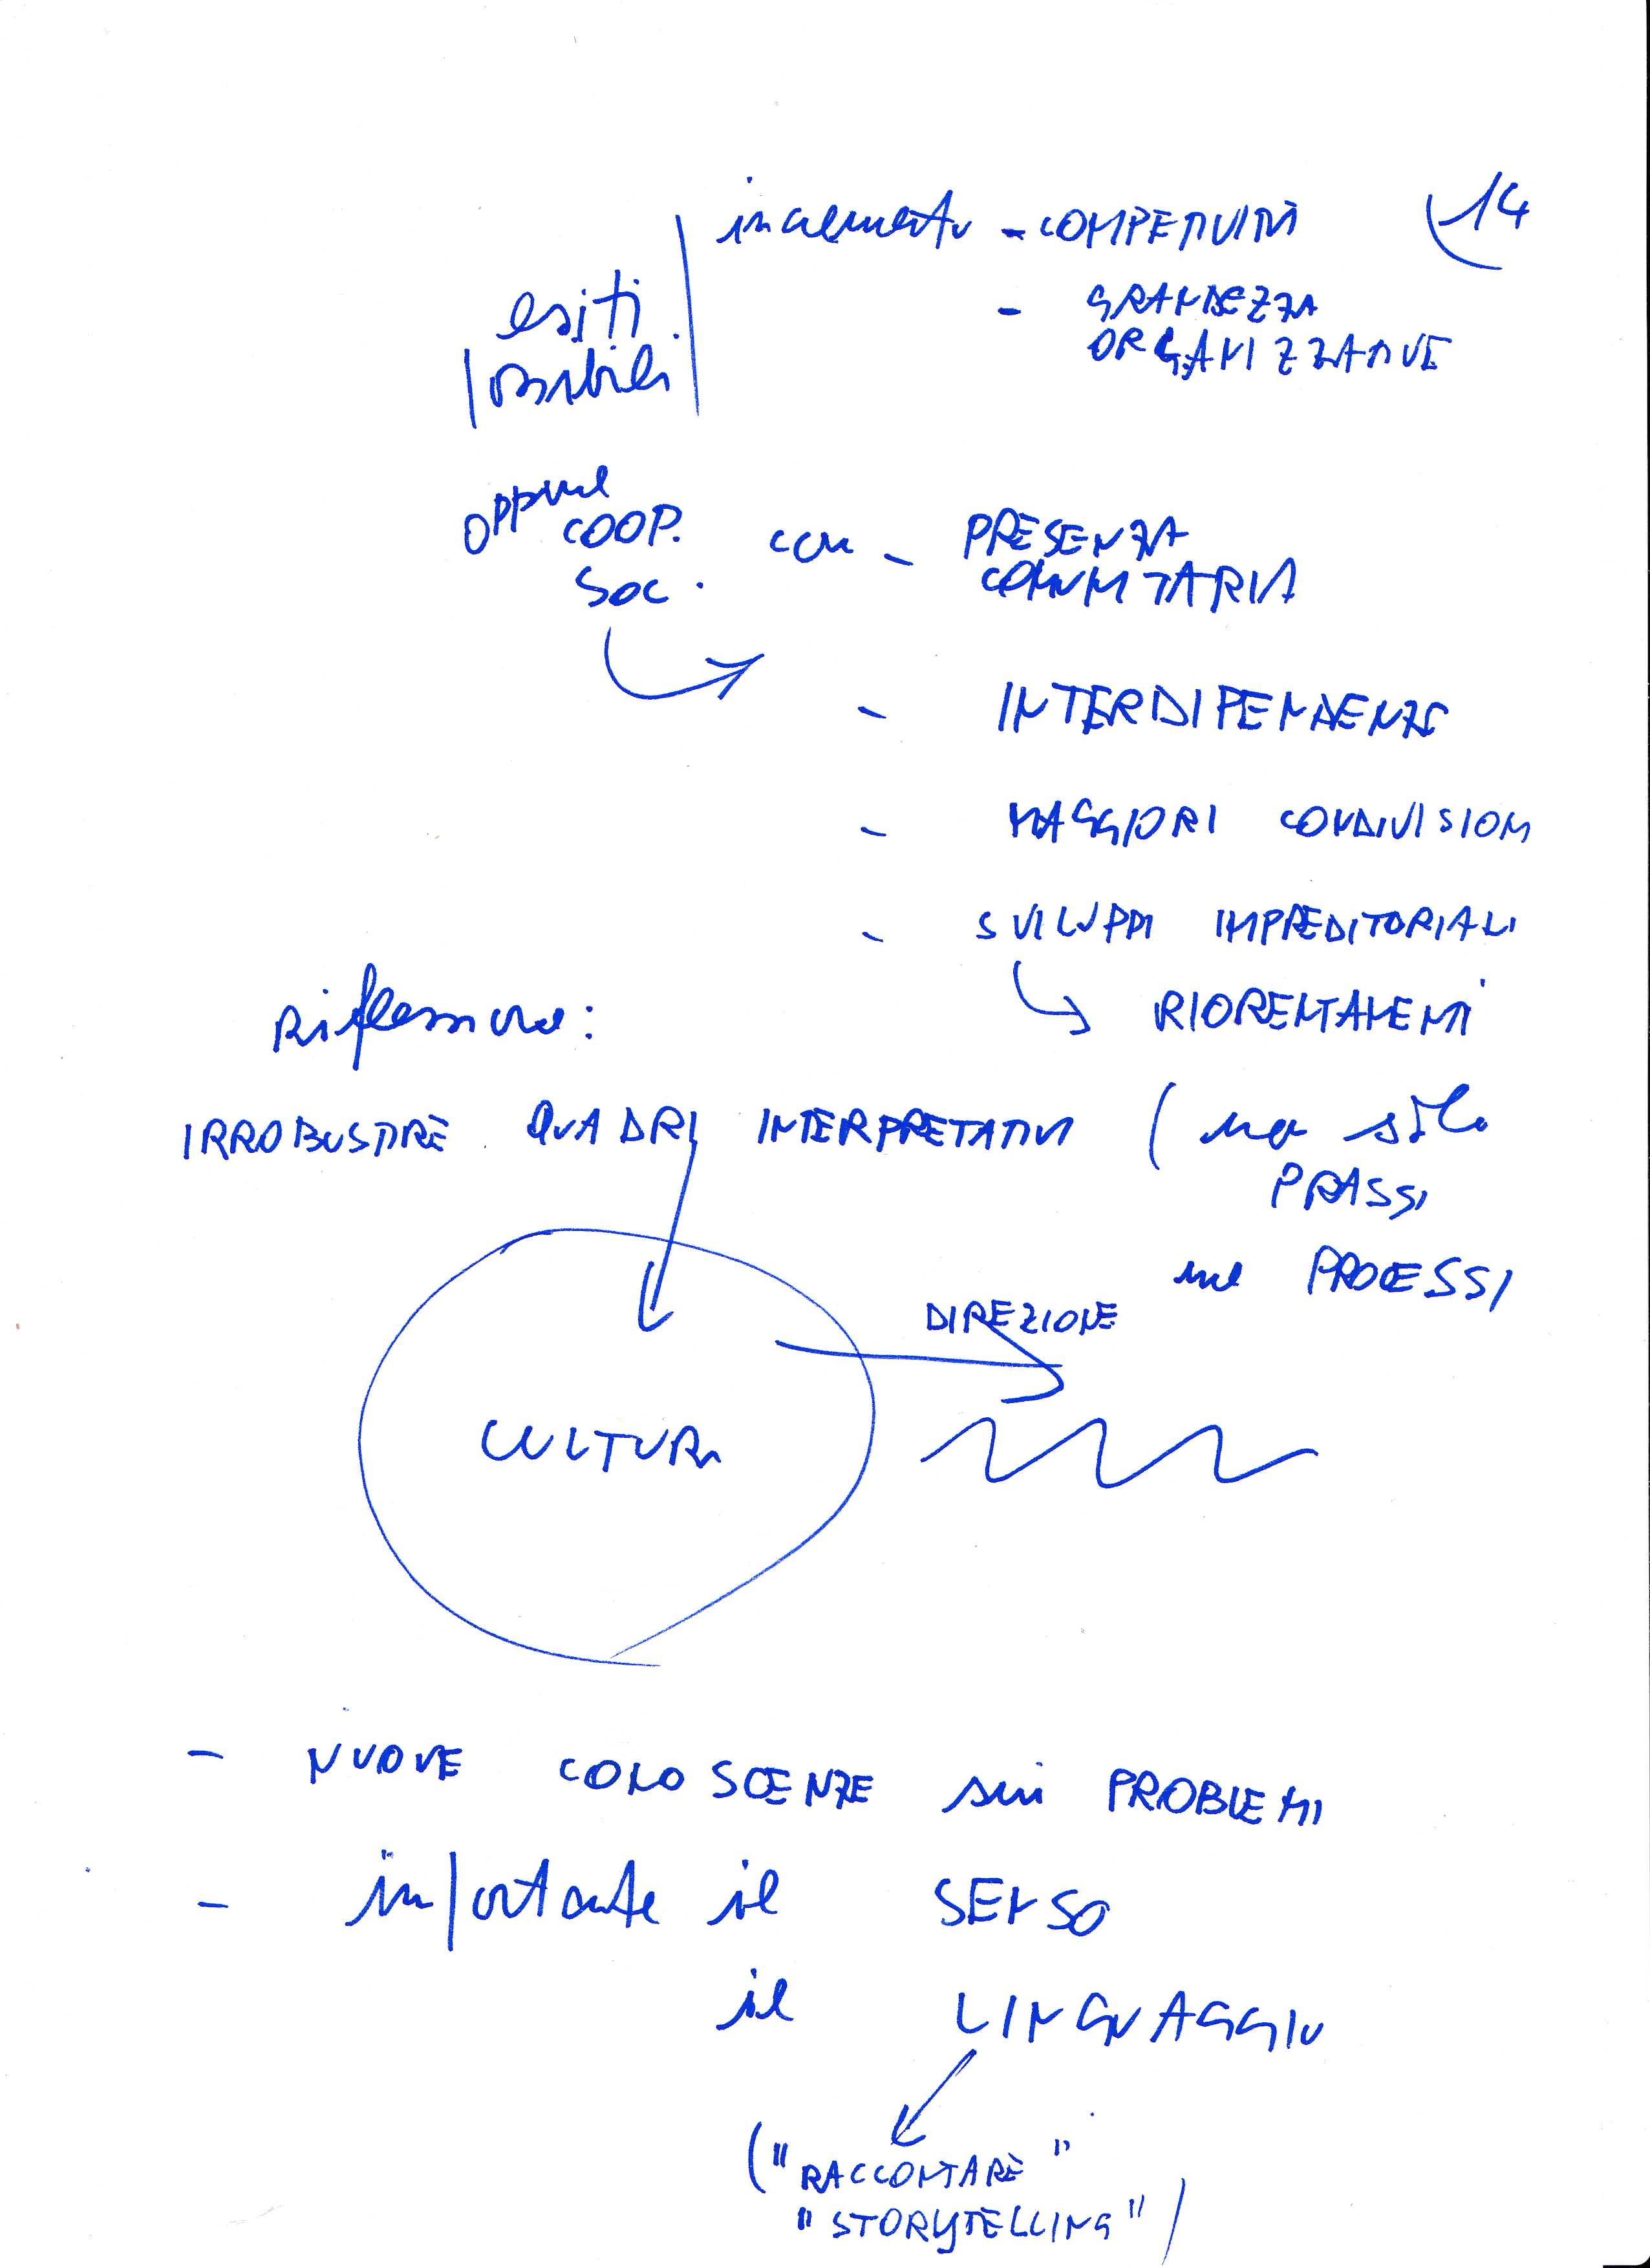 14
incremento - COMPETITIVITÀ
esiti possibili
- GRANDEZZA
ORGANIZZATIVE
oppure
COOP. SOC. con - PRESENZA
COMUNITARIA
- INTERDIPENDENZE
- MAGGIORI CONDIVISIONI
- SVILUPPI IMPREDITORIALI
RIORENTAMENTI
Riflessione:
IRROBUSTIRE QUADRI INTERPRETATIVI (no solo
PRASSI
DIREZIONE
PROCESSI
CULTURA
- NUOVE CONOSCENZE sui PROBLEMI
- importante il SENSO
il LINGUAGGIO
("RACCONTARE"
"STORYTELLING")